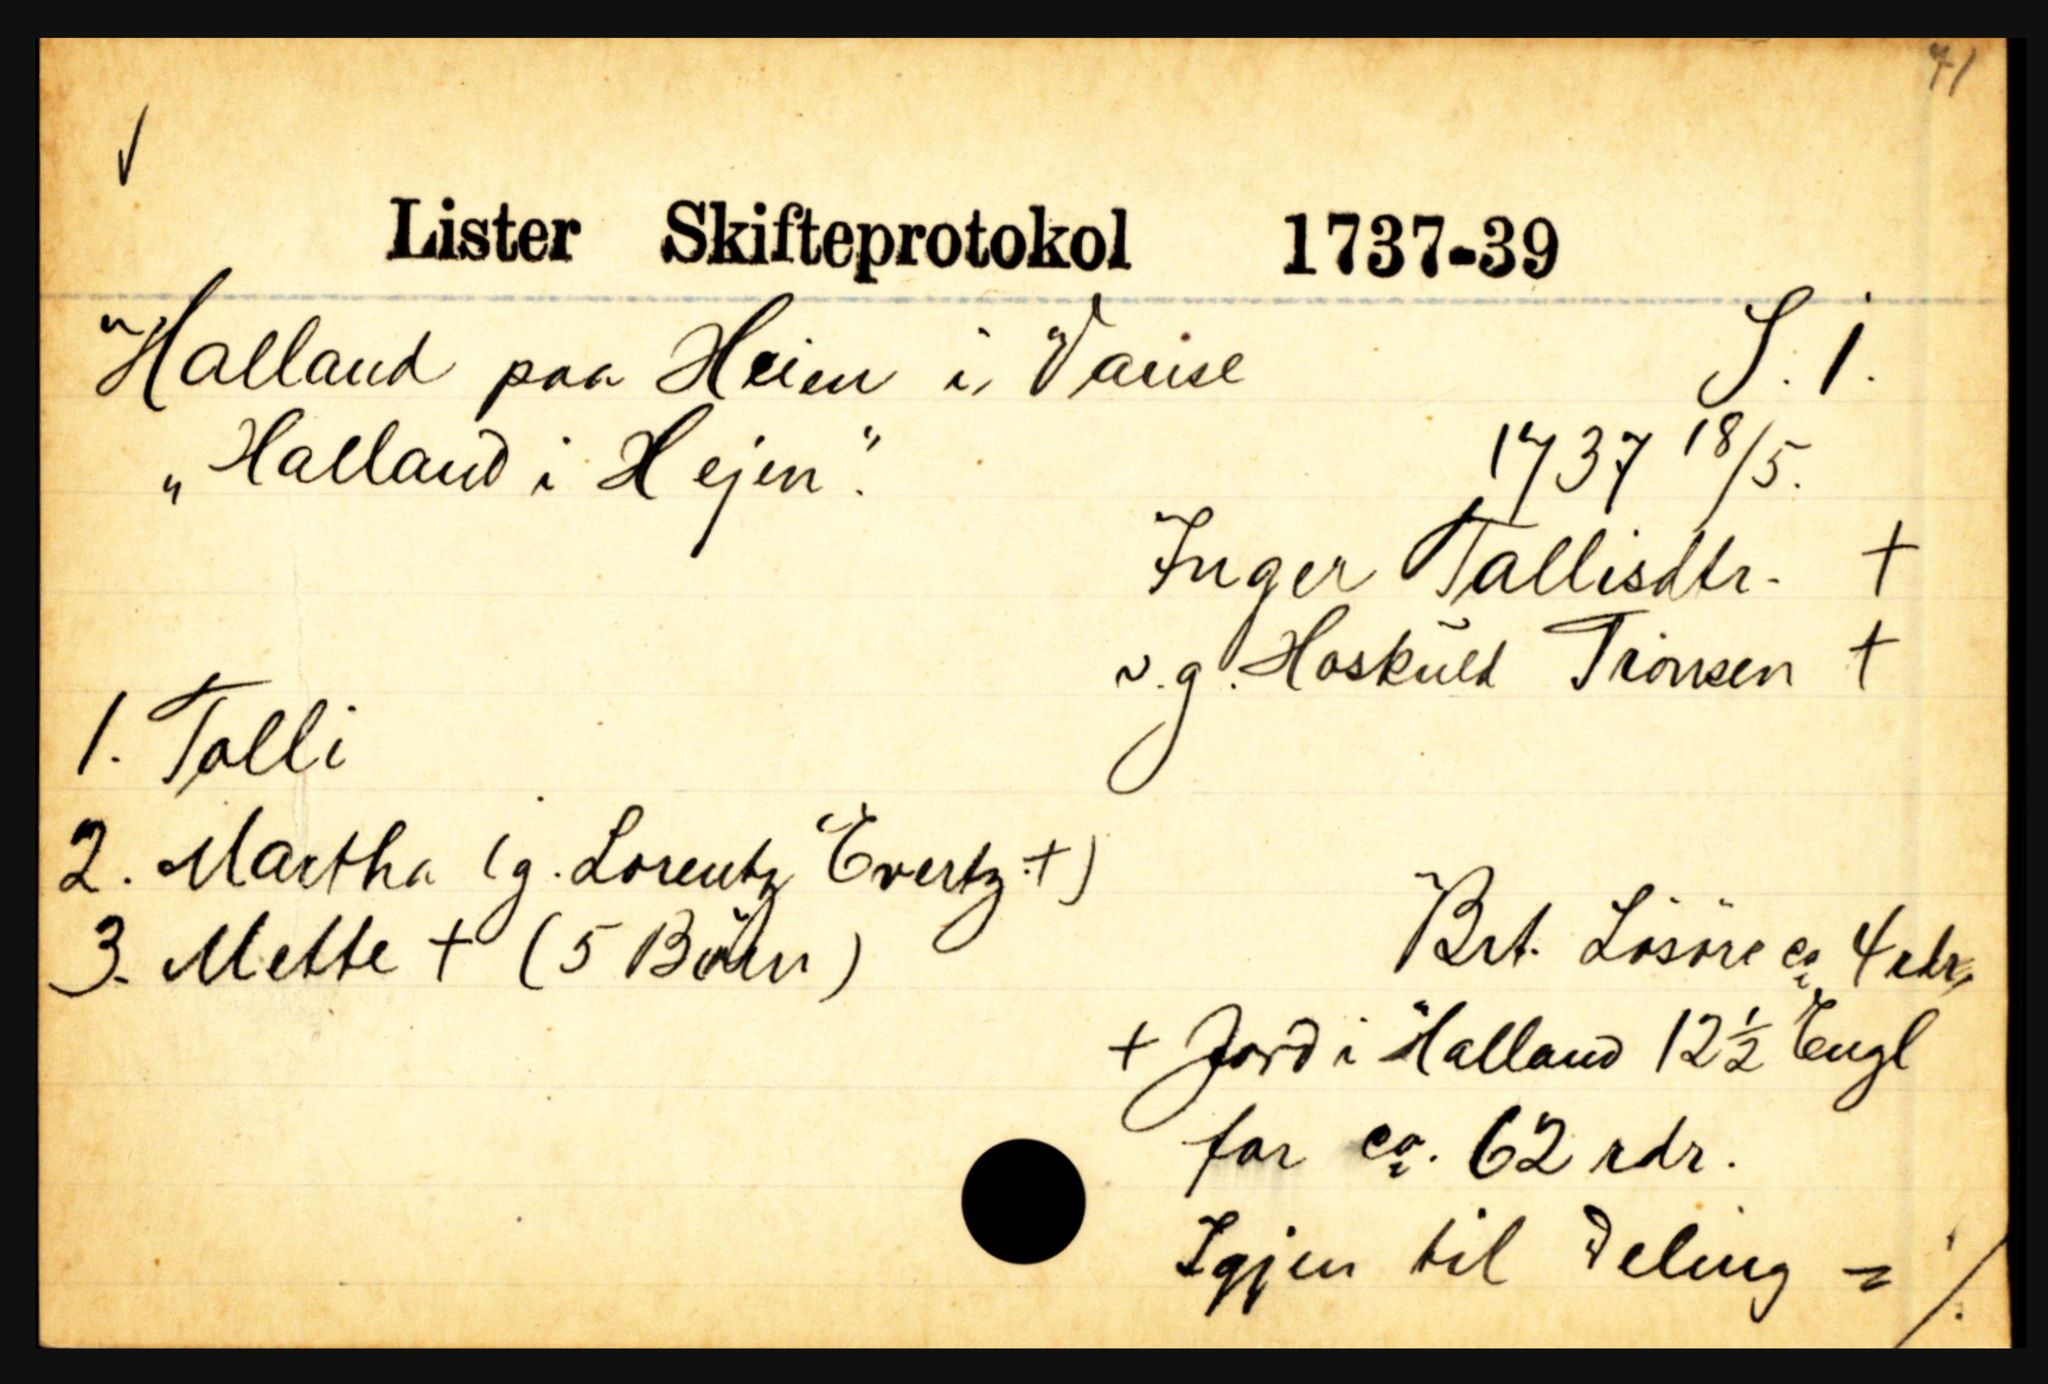 41
Lister Skifteprotokol 1737-39
Halland paa Heien i, Vanse S. 1.
„Halland i Hejen“. 1737 18/5.
Inger Tallisdtr. +
v. g. Hoskuld Trónsen +
1. Talli
2. Martha (g. Lorentz Evertz. +)
3. Mette + (5 Börn)
Brt. Lösöre ca. 4 rdr.
+ Jord i Halland 12½ Engl
for ca. 62 rdr.
Igjen til Deling = ./.